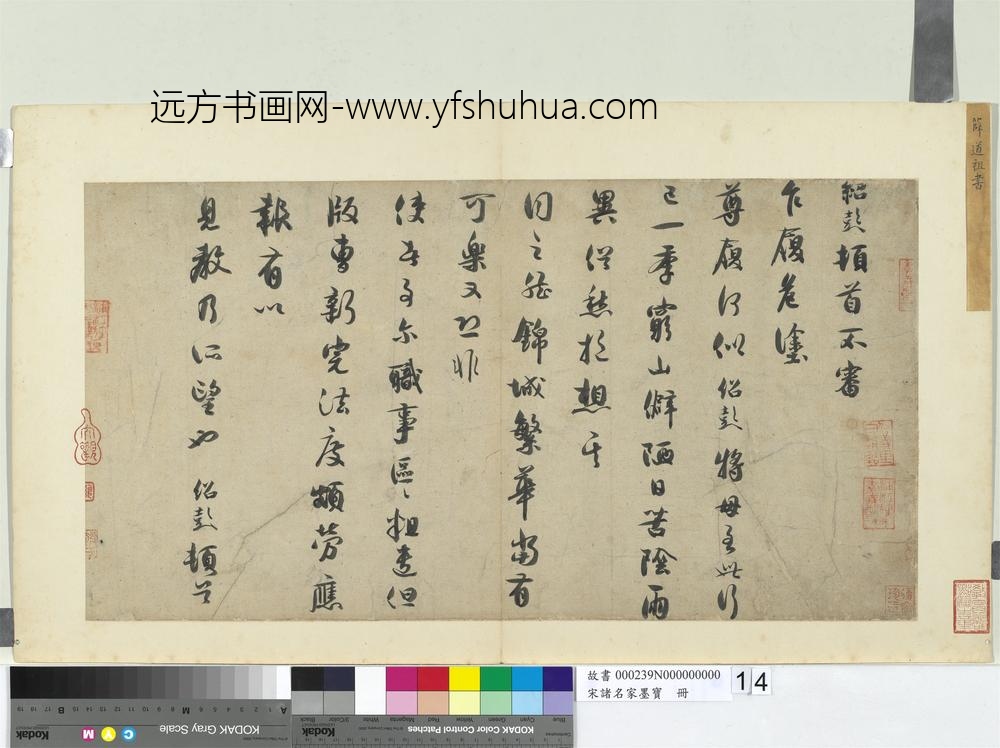 远方书画网-www.yfshuhua.com
薛道祖書
紹彭頓首不審
乍履危塗
尊履何似紹彭將母至此行
已一季窮山僻陋日苦陰雨
異俗愁於想其
同之能錦城繁華當有
可樂又恐非
使者事尔職事區區粗遣但
版曹新完法度頗勞應
報有以
見教乃所望也 紹彭頓首
故書 000239N000000000
宋諸名家墨寶 冊
14
KODAK Gray Scale
C Y M
Kodak
KODAK Color Control Patches
Blue Cyan Green Yellow Red Magenta White 3/Color Black